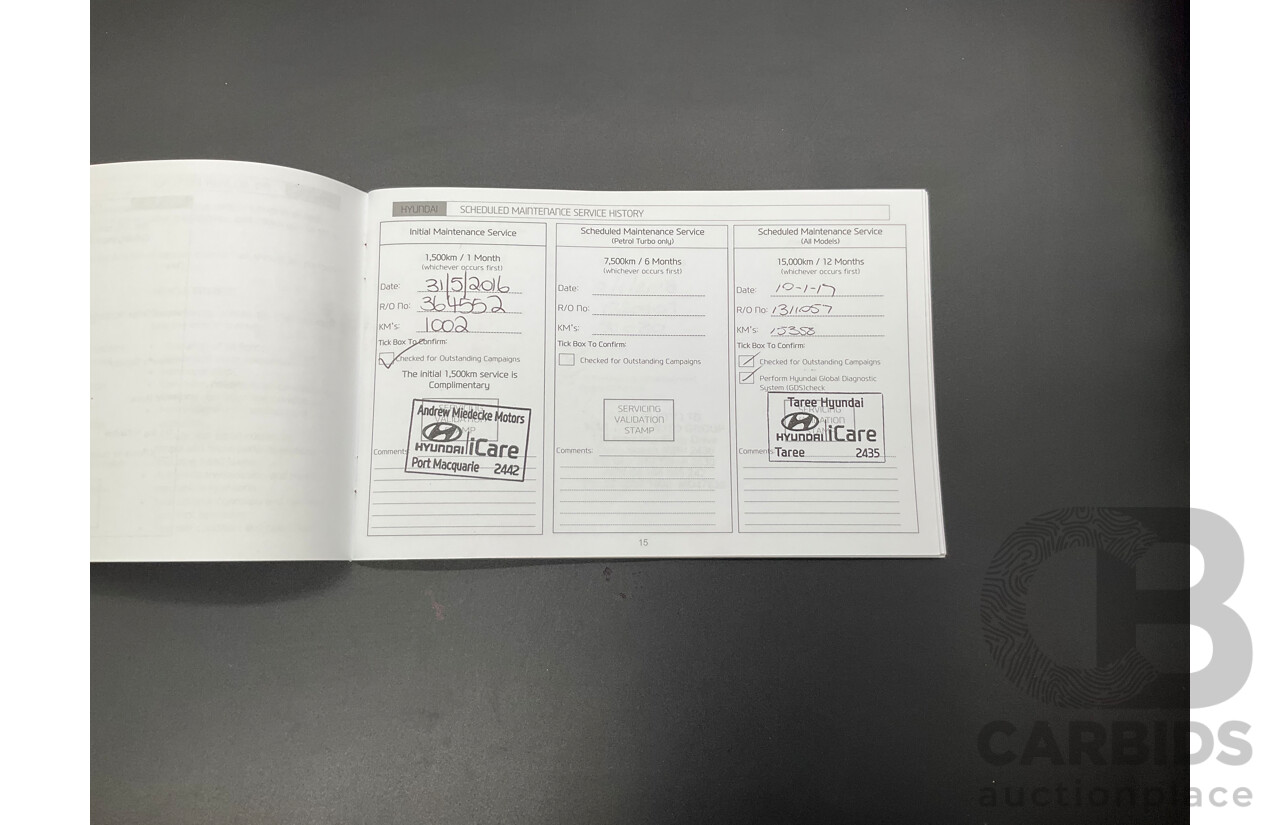 HYUNDAI SCHEDULED MAINTENANCE SERVICE HISTORY
Initial Maintenance Service
1,500km / 1 Month
(whichever occurs first)
Date: 31/5/2016
R/O No: 364552
KM's: 1002
Tick Box To Confirm:
Checked for Outstanding Campaigns
The initial 1,500km service is
Complimentary
Andrew Miedecke Motors
HYUNDAI iCare
Port Macquarie 2442
Comments
Scheduled Maintenance Service
(Petrol Turbo only)
7,500km / 6 Months
(whichever occurs first)
Date:
R/O No:
KM's:
Tick Box To Confirm:
Checked for Outstanding Campaigns
SERVICING
VALIDATION
STAMP
Comments:
Scheduled Maintenance Service
(All Models)
15,000km / 12 Months
(whichever occurs first)
Date: 10-1-17
R/O No: 1311057
KM's: 15358
Tick Box To Confirm:
Checked for Outstanding Campaigns
Perform Hyundai Global Diagnostic
System (GDS)check
Taree Hyundai
HYUNDAI iCare
Taree 2435
Comments
15
CB
CARBIDS
auctionplace